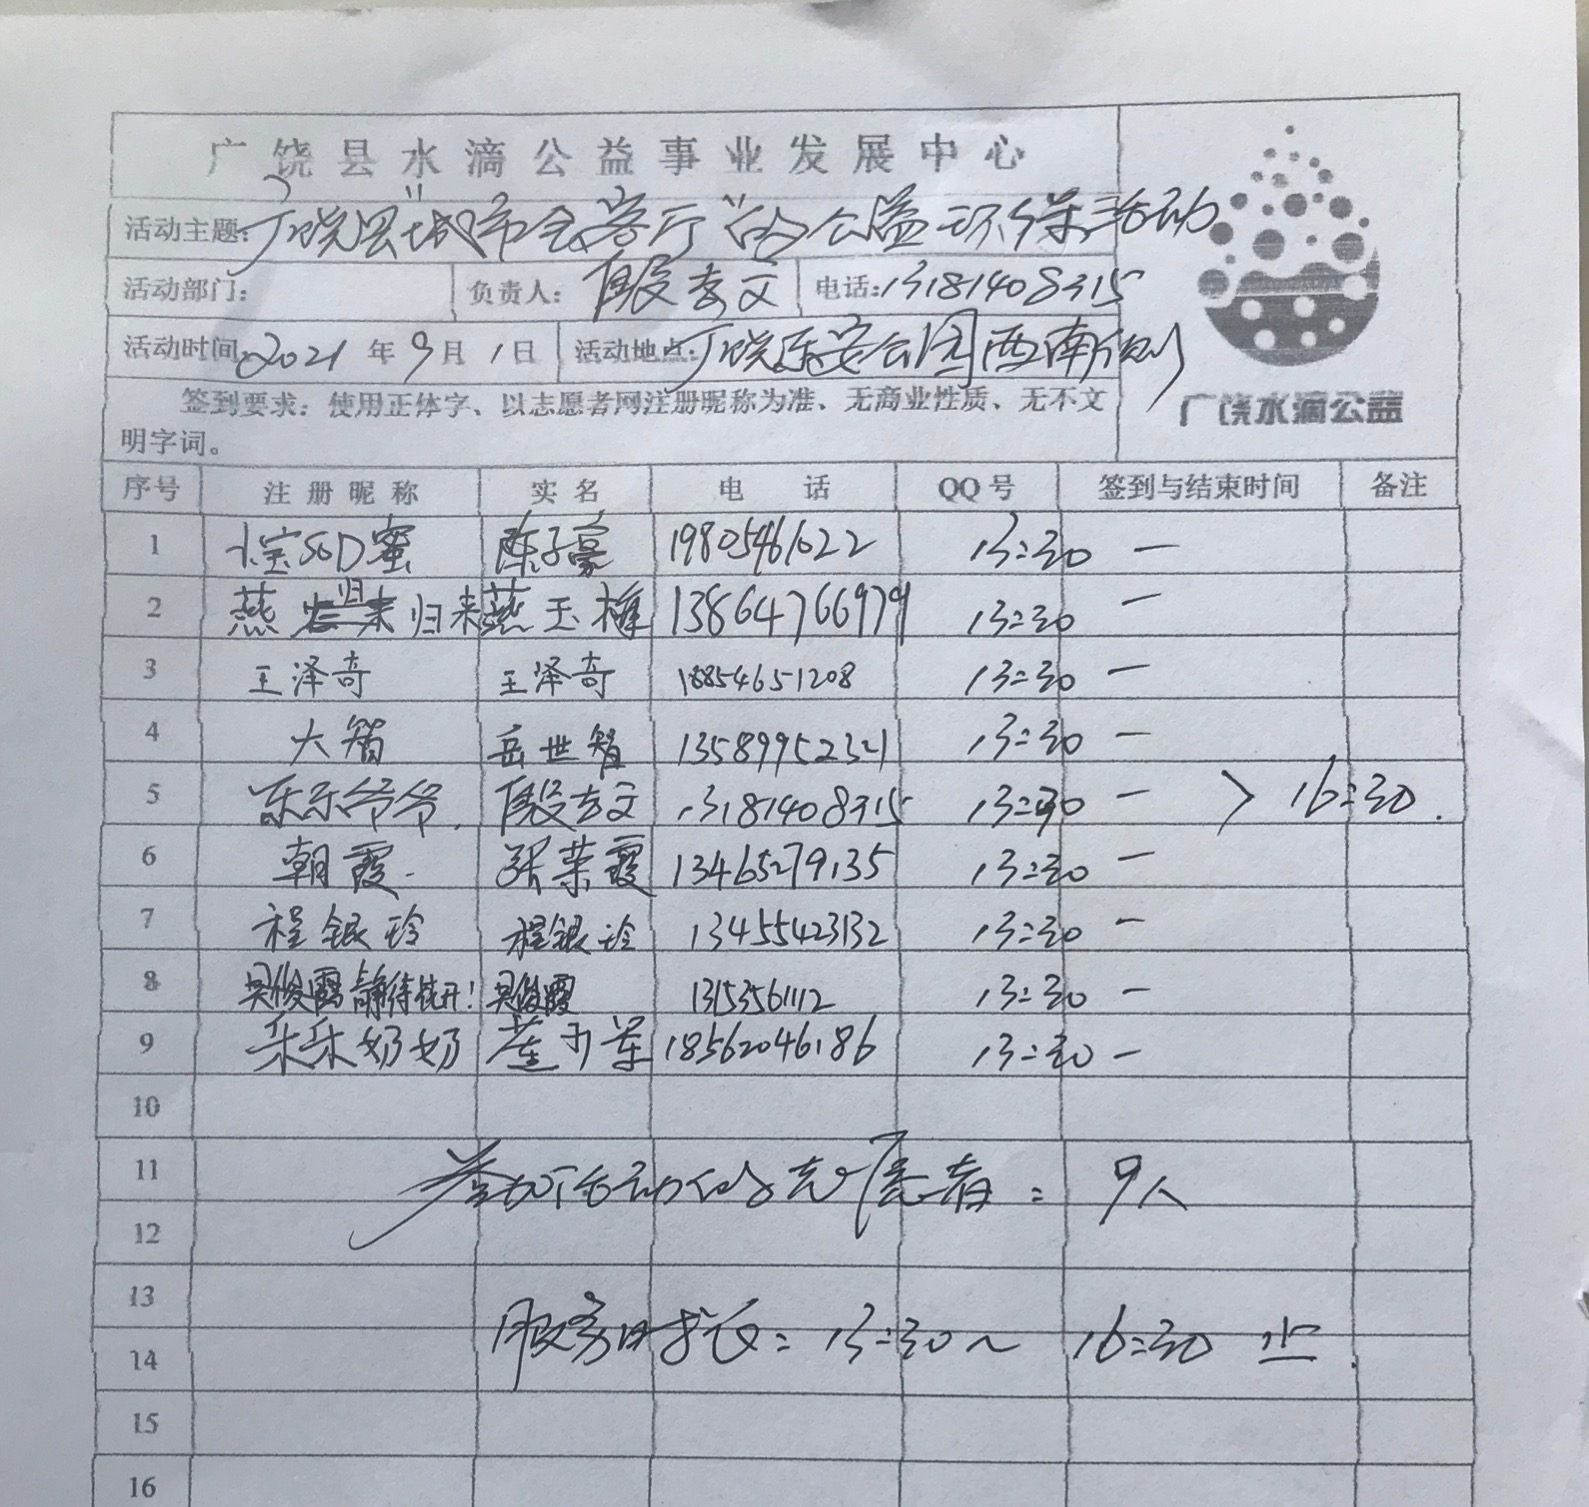 广饶县水滴公益事业发展中心
活动主题：广饶县"城市会客厅"的公益环保活动
活动部门： 负责人：殷孝文 电话：13181408315
活动时间：2021年9月1日 活动地点：广饶乐安公园西南侧
签到要求：使用正体字、以志愿者网注册昵称为准、无商业性质、无不文
明字词。
广饶水滴公益
序号 注册昵称 实名 电话 QQ号 签到与结束时间 备注
1 SOD蜜 陈子豪 19805461022 13:30 —
2 燕归来 燕玉梅 13864766979 13:30 —
3 王泽奇 王泽奇 18854651208 13:30 —
4 大智 岳世智 13589952321 13:30 —
5 乐乐爷爷 殷孝文 13181408315 13:30 — > 16:30.
6 朝霞 张荣霞 13465279135 13:30 —
7 程银玲 程银玲 13455423132 13:30 —
8 吴俊霞静待花开！ 吴俊霞 13153561112 13:30 —
9 乐乐奶奶 18562046186 13:30 —
10
11 参加活动的志愿者：9人
12
13
服务时长：13:30～16:30止.
14
15
16